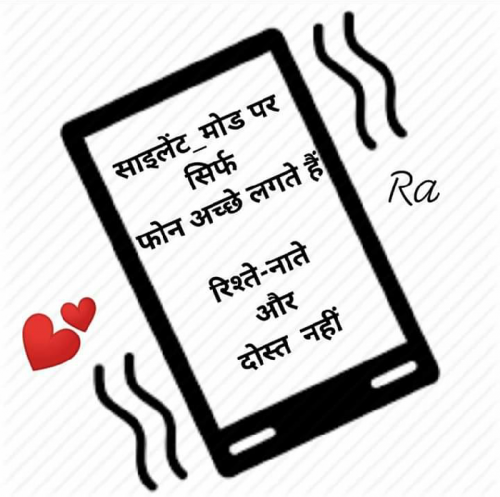 साइलेंट_मोड पर
सिर्फ
फोन अच्छे लगते हैं
रिश्ते-नाते
और
दोस्त नहीं
Ra